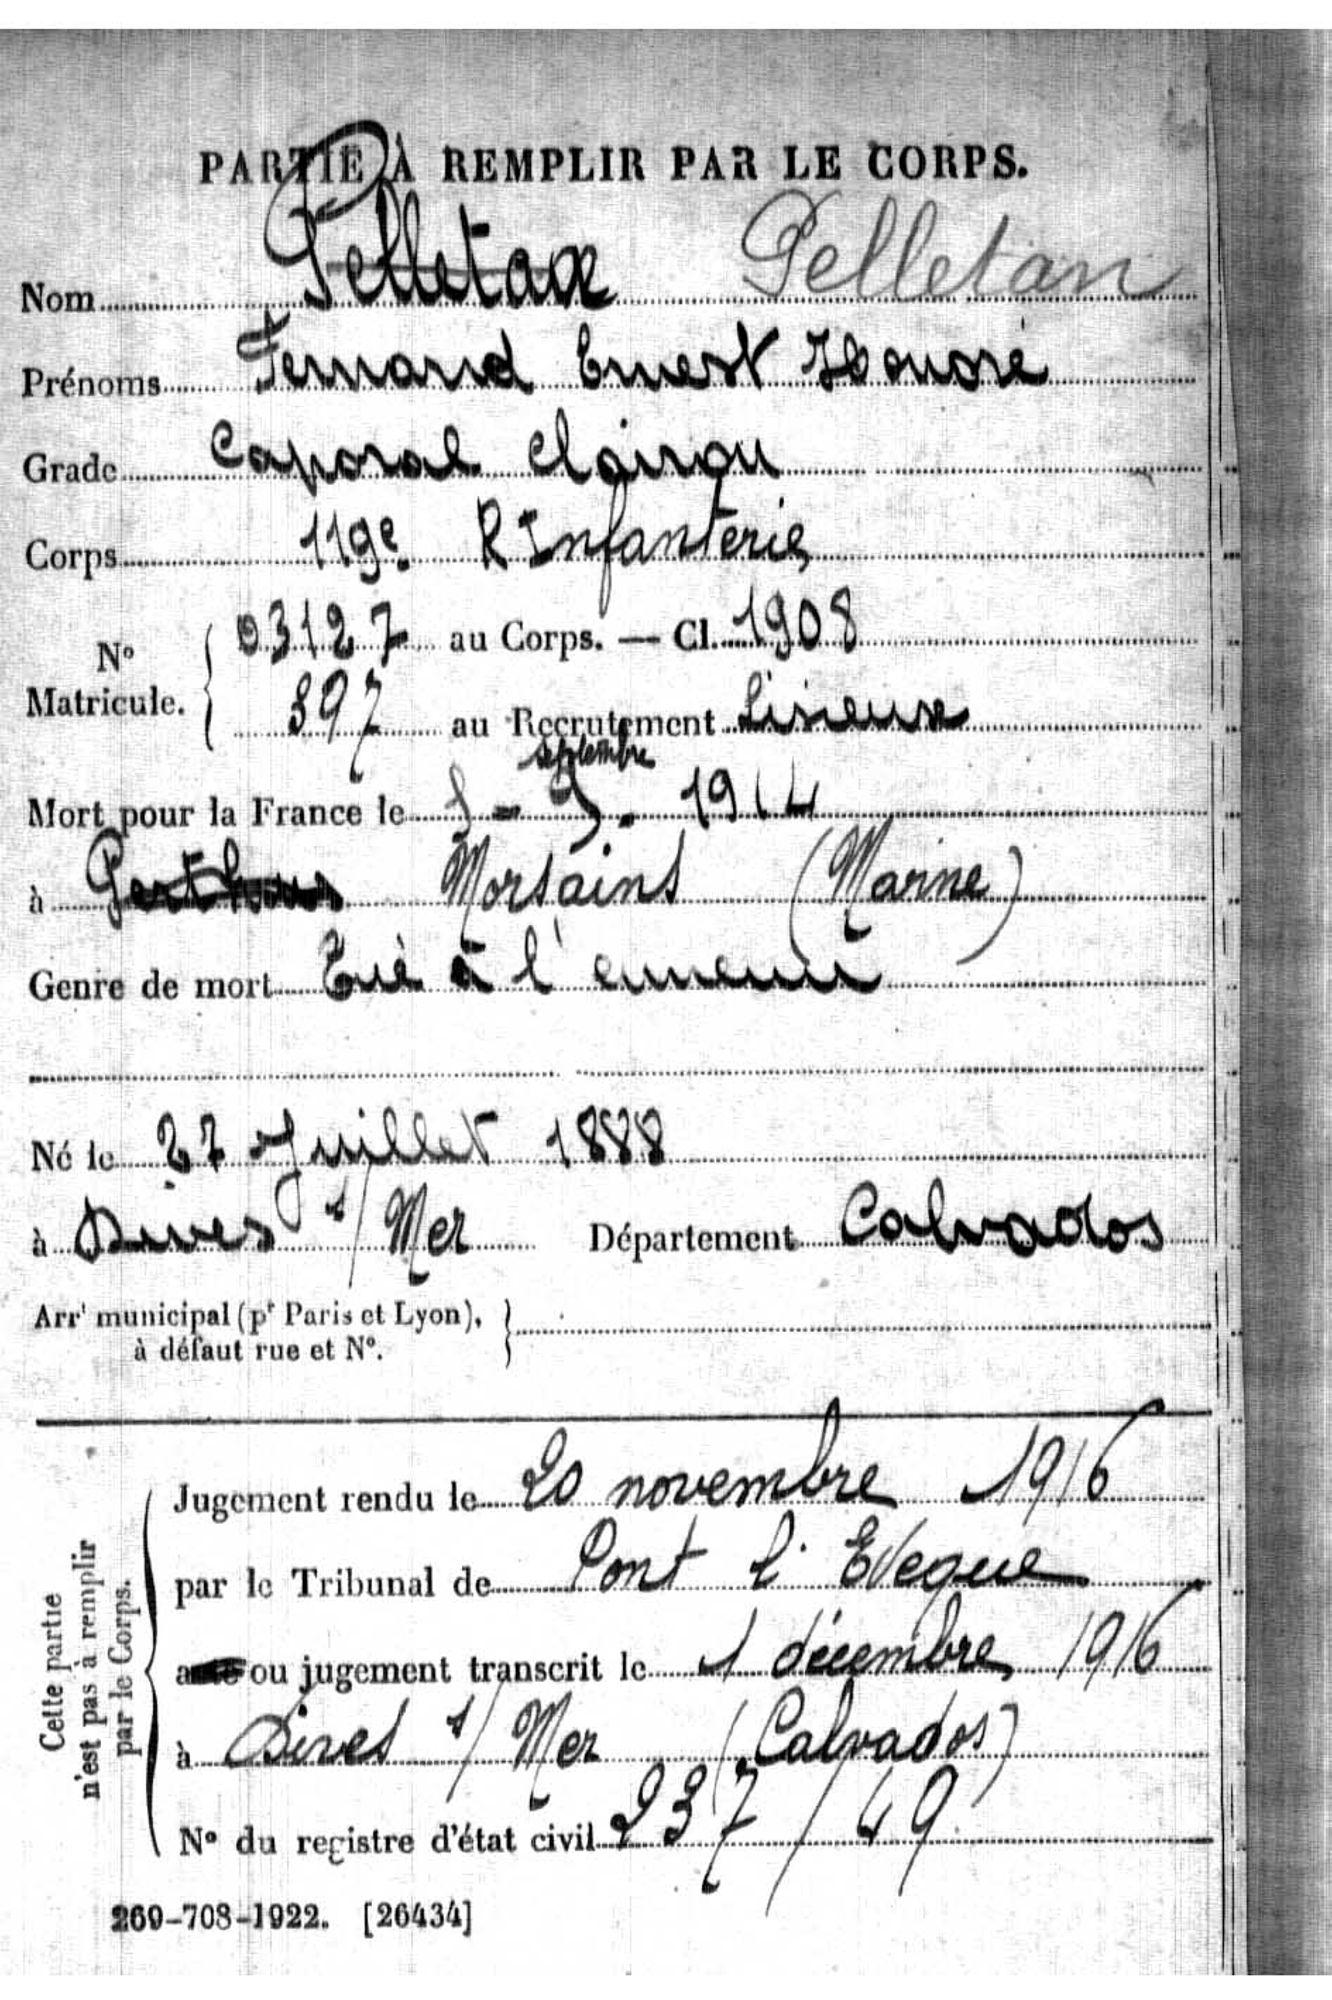 PARTIE À REMPLIR PAR LE CORPS.
Nom Pelletan Pelletan
Prénoms Fernand Ernest Honoré
Grade Caporal Clairon
Corps 119e R Infanterie
N°
Matricule.
03127 au Corps. — Cl. 1908
897 au Recrutement Lisieux
septembre
Mort pour la France le 8 - 9. 1914
à Morsains (Marne)
Genre de mort Tué à l'ennemi
Né le 27 Juillet 1888
à Dives s/ Mer Département Calvados
Arrt municipal (pr Paris et Lyon),
à défaut rue et N°.
Cette partie
n'est pas à remplir
par le Corps.
Jugement rendu le 20 novembre 1916
par le Tribunal de Pont l'Eveque
acte ou jugement transcrit le 1 décembre 1916
à Dives s/ Mer (Calvados)
N° du registre d'état civil 237/49
269-708-1922. [26434]